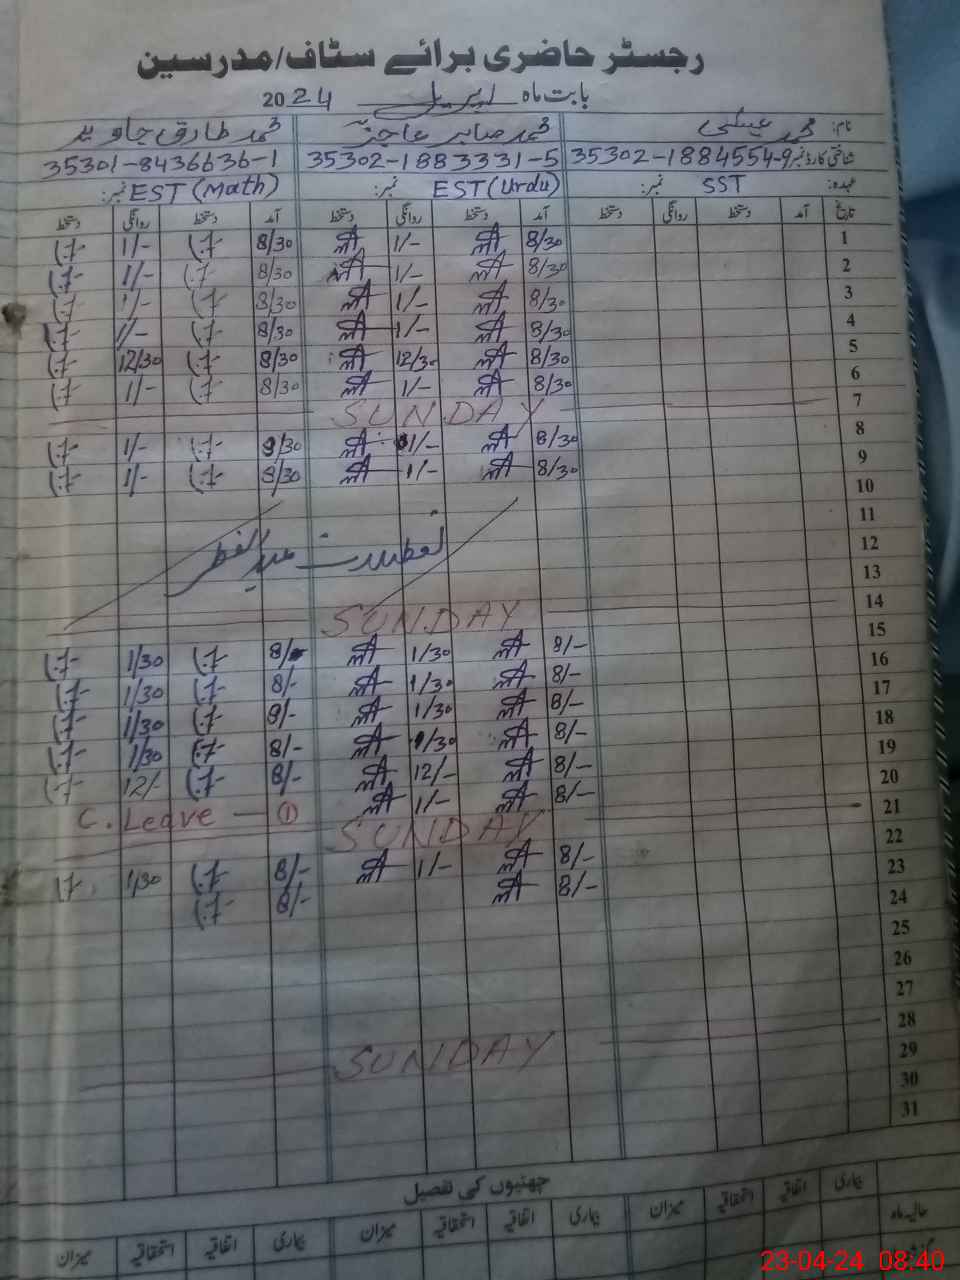 رجسٹر حاضری برائے سٹاف/مدرسین
بابت ماہ اپریل 2024
نام: محمد عیسیٰ محمد صابر عاجز محمد طارق جاوید
شناختی کارڈ نمبر 35302-1884554-9 35302-1883331-5 35301-8436636-1
عہدہ: SST نمبر: EST (Urdu) نمبر: EST (Math) نمبر:
تاریخ آمد دستخط روانگی دستخط آمد دستخط روانگی دستخط آمد دستخط روانگی دستخط
1 8/30 1/- 8/30 1/-
2 8/30 1/- 8/30 1/-
3 8/30 1/- 8/30 1/-
4 8/30 1/- 8/30 1/-
5 8/30 12/30 8/30 12/30
6 8/30 1/- 8/30 1/-
7 SUNDAY
8 8/30 1/- 8/30 1/-
9 8/30 1/- 8/30 1/-
10
11
12 تعطیلات عید الفطر
13
14 SUNDAY
15 8/- 1/30 8/- 1/30
16 8/- 1/30 8/- 1/30
17 8/- 1/30 8/- 1/30
18 8/- 1/30 8/- 1/30
19 8/- 12/- 8/- 12/-
20 8/- 1/- C. Leave — ①
21 SUNDAY
22 8/- 1/- 8/- 1/30
23 8/- 8/-
24
25
26
27
28 SUNDAY
29
30
31
چھٹیوں کی تفصیل
حالیہ ماہ بیماری اتفاقیہ استحقاقیہ میزان بیماری اتفاقیہ استحقاقیہ میزان بیماری اتفاقیہ استحقاقیہ میزان
23-04-24 08:40